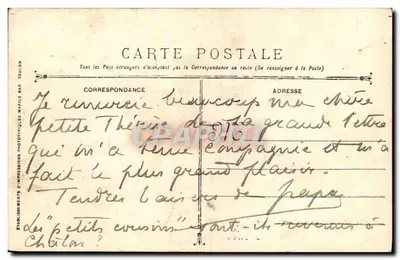 CARTE POSTALE
Tous les Pays étrangers n'acceptent pas la Correspondance au recto (Se renseigner à la Poste)
CORRESPONDANCE
ADRESSE
Je remercie beaucoup ma chère
petite Thérèse de sa grande lettre
qui m'a tenu compagnie et m'a
fait le plus grand plaisir.
Tendres baisers de papa
Les "petits cousins" sont-ils revenus à
Châlon?
ÉTABLISSEMENTS D'IMPRESSIONS PHOTOTYPIQUES MARIUS BAR TOULON